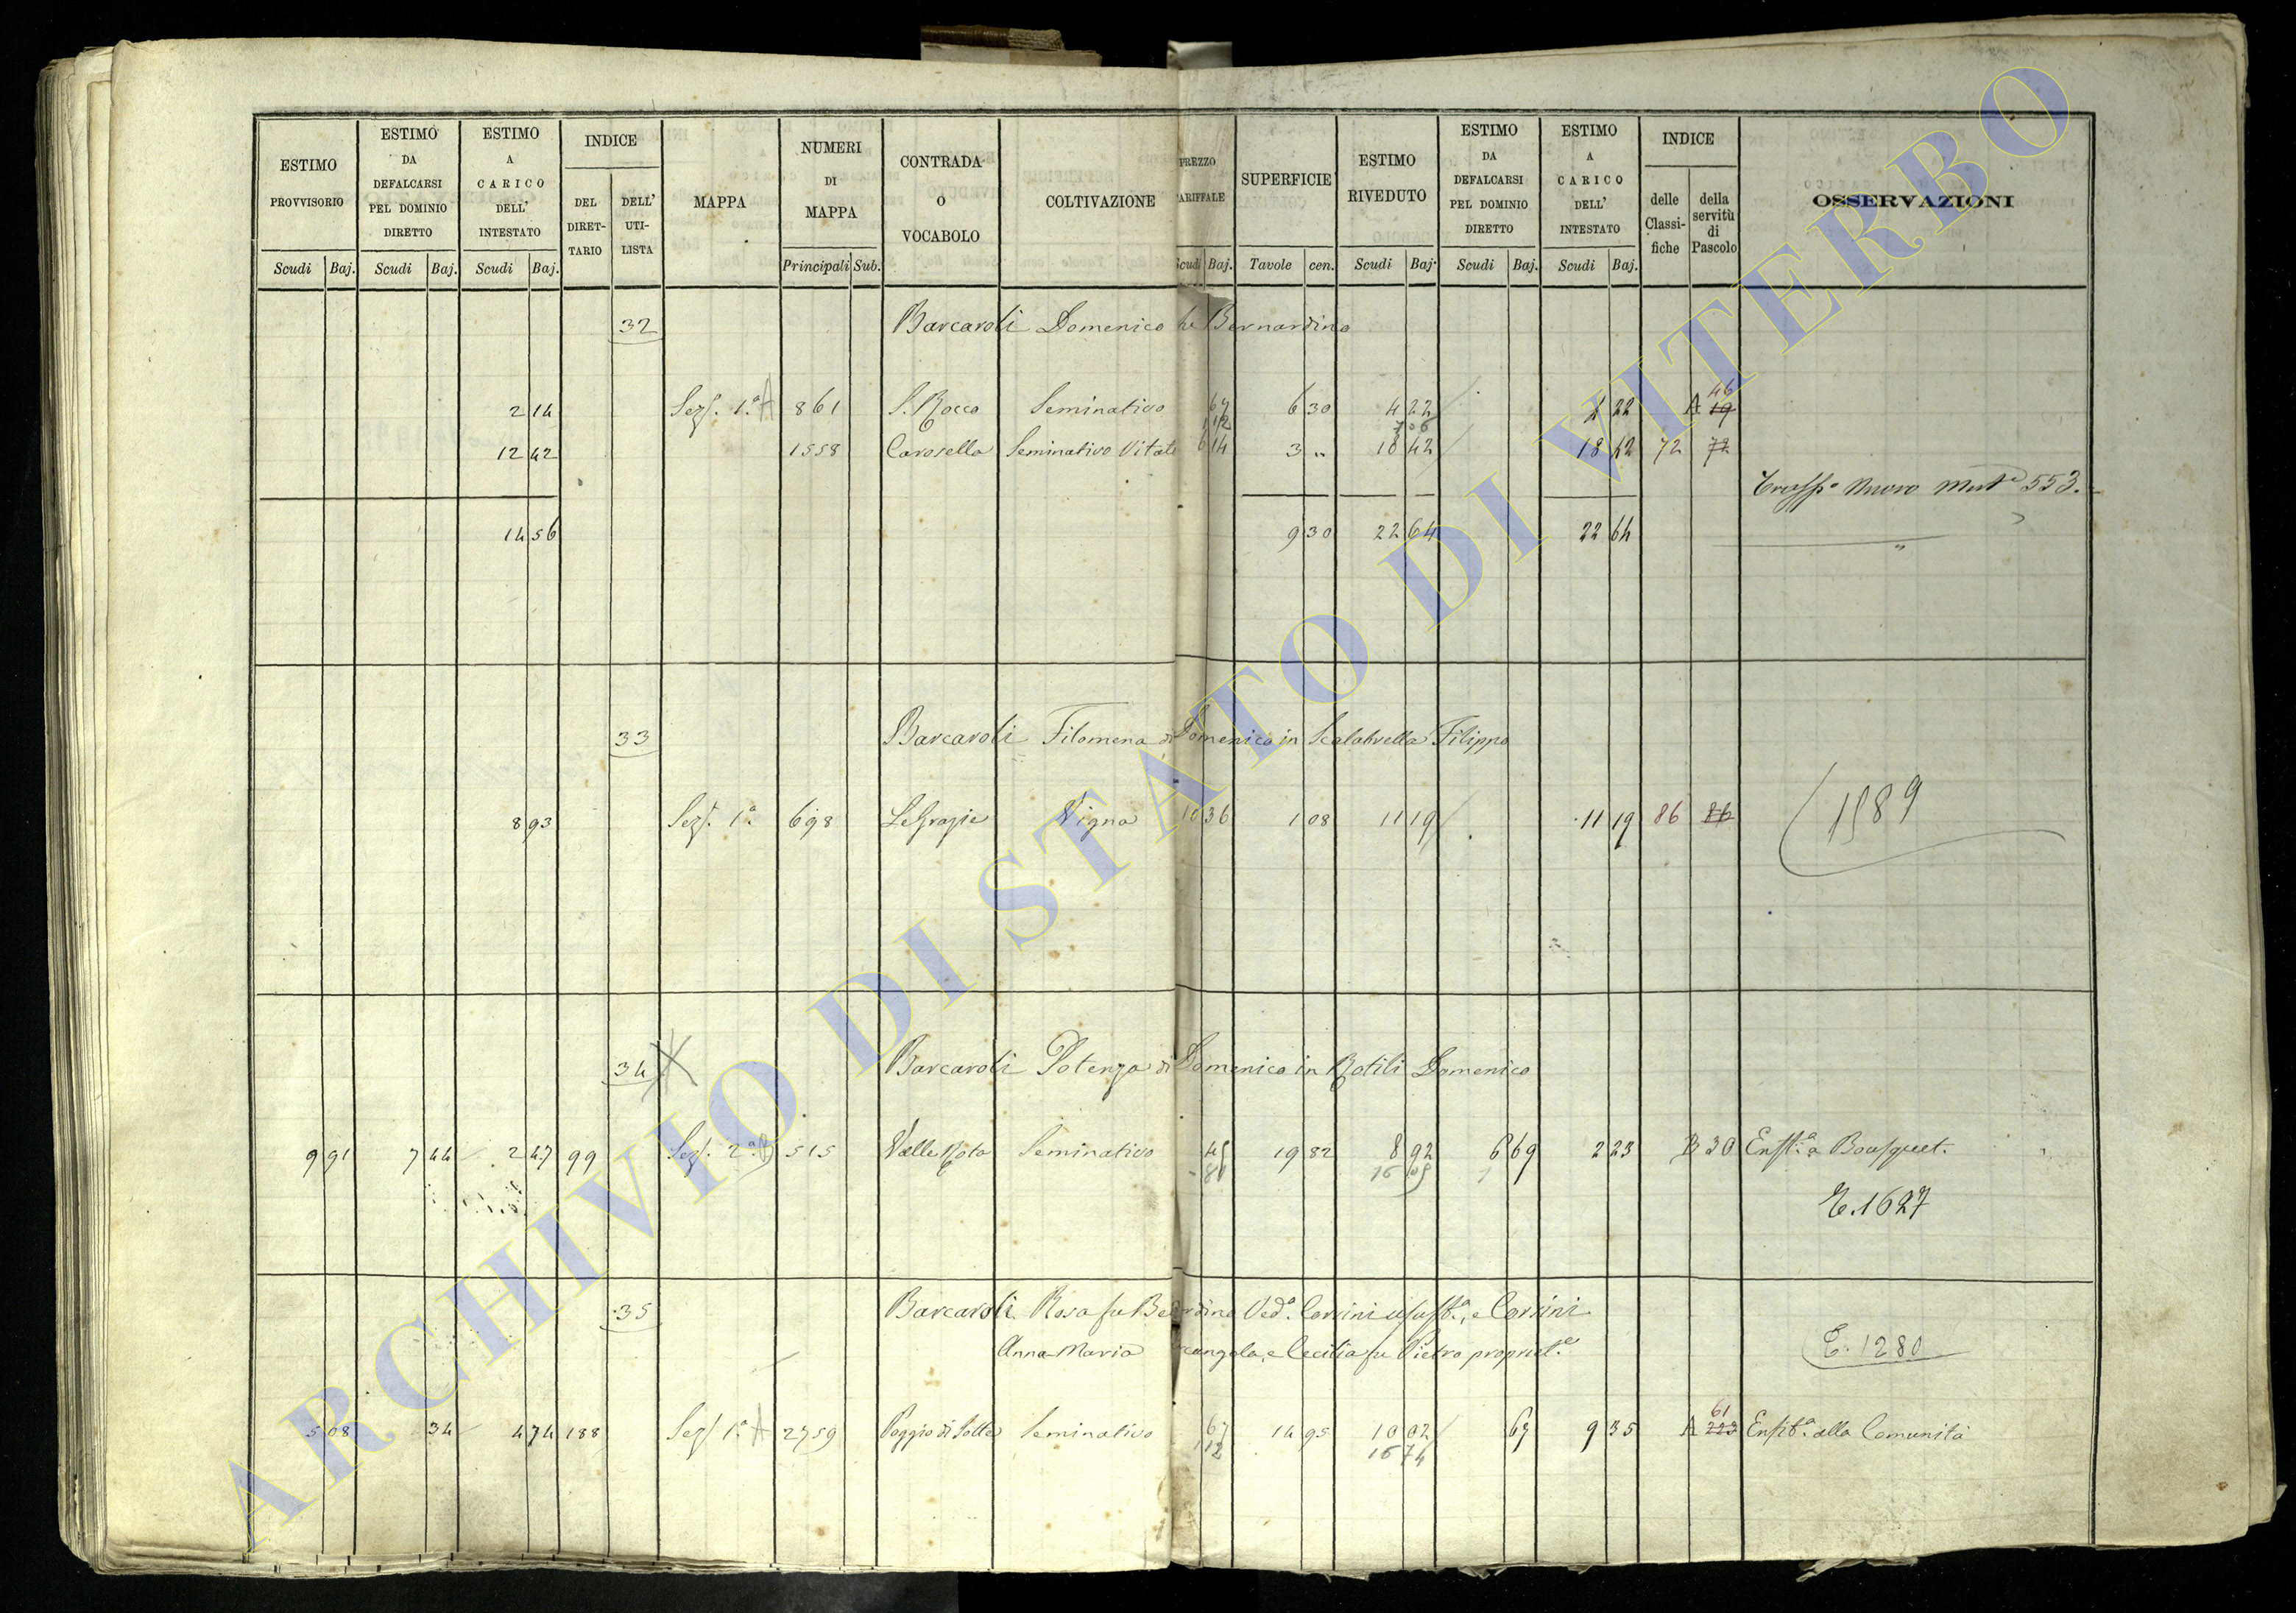 ESTIMO PROVVISORIO | ESTIMO DA DEFALCARSI PEL DOMINIO DIRETTO | ESTIMO A CARICO DELL' INTESTATO | INDICE DEL DIRETTARIO | DELL' UTILISTA | MAPPA | NUMERI DI MAPPA | CONTRADA O VOCABOLO | COLTIVAZIONE | PREZZO TARIFFALE | SUPERFICIE | ESTIMO RIVEDUTO | ESTIMO DA DEFALCARSI PEL DOMINIO DIRETTO | ESTIMO A CARICO DELL' INTESTATO | INDICE delle Classifiche | della servitù di Pascolo | OSSERVAZIONI
Scudi Baj. Scudi Baj. Scudi Baj. Principali Sub. Scudi Baj. Tavole cen. Scudi Baj. Scudi Baj. Scudi Baj.
32 Barcaroli Domenico fu Bernardino
2 14 Sez. 1.ª A 861 S. Rocco Seminativo 67 6 30 4 22 4 22 A 46 19
1 12 7 06
12 42 1558 Carosella Seminativo Vitato 6 14 3 " 18 42 18 42 72 72
Trasp.o Nuovo Mut.e 553.
14 56 9 30 22 64 22 64
33 Barcaroli Filomena di Domenico in Scalabrella Filippo
8 93 Sez. 1.ª 698 Le Grazie Vigna 10 36 1 08 11 19 11 19 86 86 1589
34 Barcaroli Potenza di Domenico in Rotili Domenico
9 91 7 44 2 47 99 Sez. 2.ª B 515 Valle Rota Seminativo 45 19 82 8 92 6 69 2 23 B 30 Enft.a a Bousquet.
81 16 05
E. 1627
35 Barcaroli Rosa fu Bernardino Ved.a Corsini usuft.a, e Corsini
Anna Maria Arcangela, e Cecilia fu Pietro propriet.e
E. 1280
5 08 34 4 74 188 Sez. 1.ª A 2759 Poggio di Sotto Seminativo 67 14 95 10 02 67 9 35 A 61 223 Enfit.a alla Comunità
1 12 16 74
ARCHIVIO DI STATO DI VITERBO